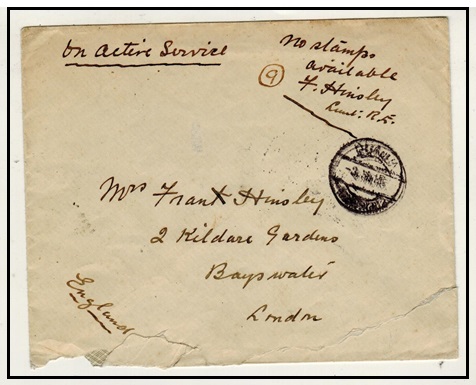 On Active Service
No stamps
available
F. Hinsley
Lieut: R.E.
9
Mrs Frank Hinsley
2 Kildare Gardens
Bayswater
London
England